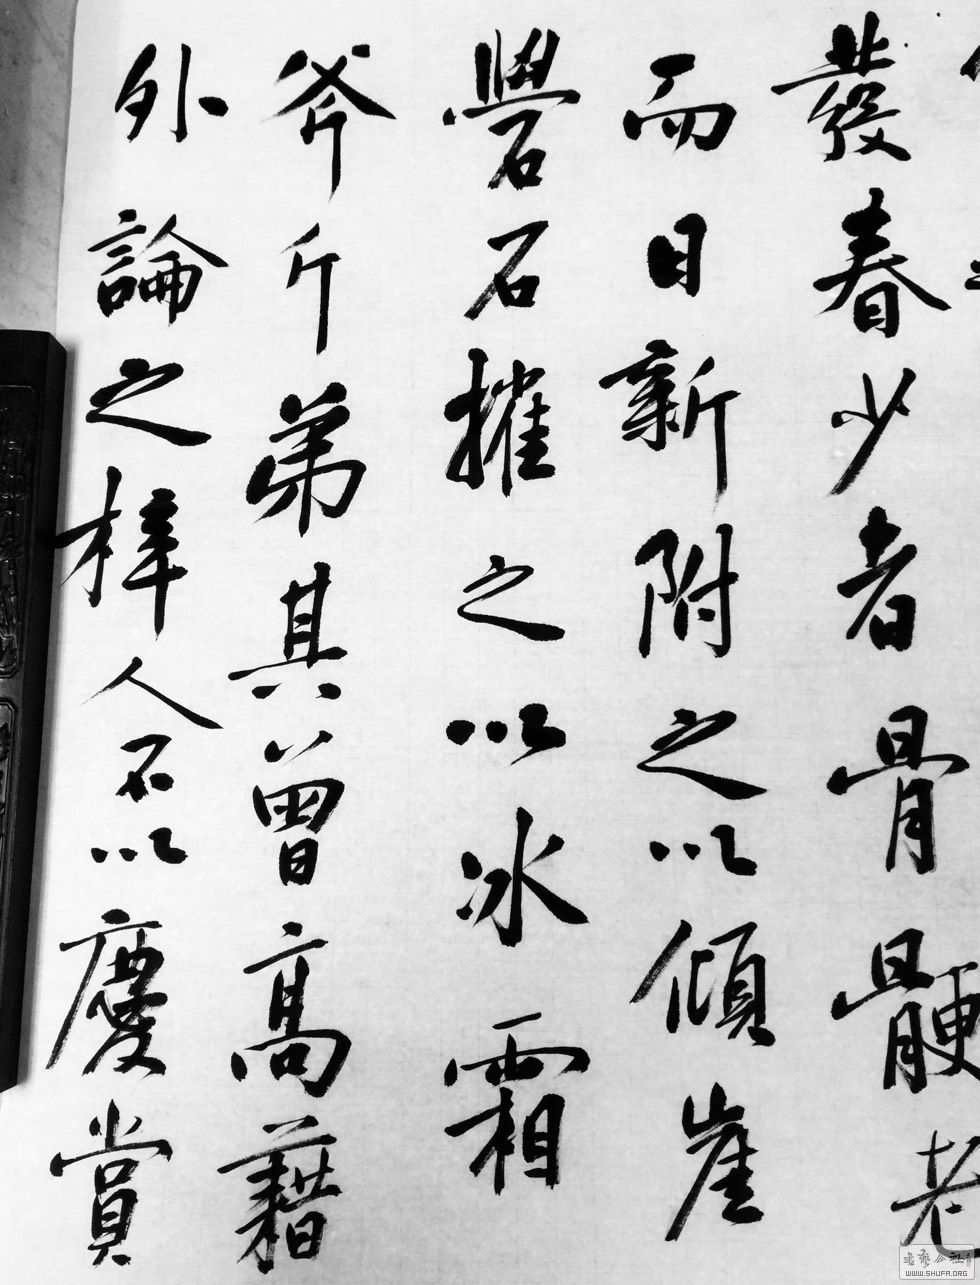 發春少者骨骾老
而日新附之以傾崖
礐石摧之以冰霜
斧斤弟其曾高藉
外論之梓人不以慶賞
WWW.SHUFA.ORG